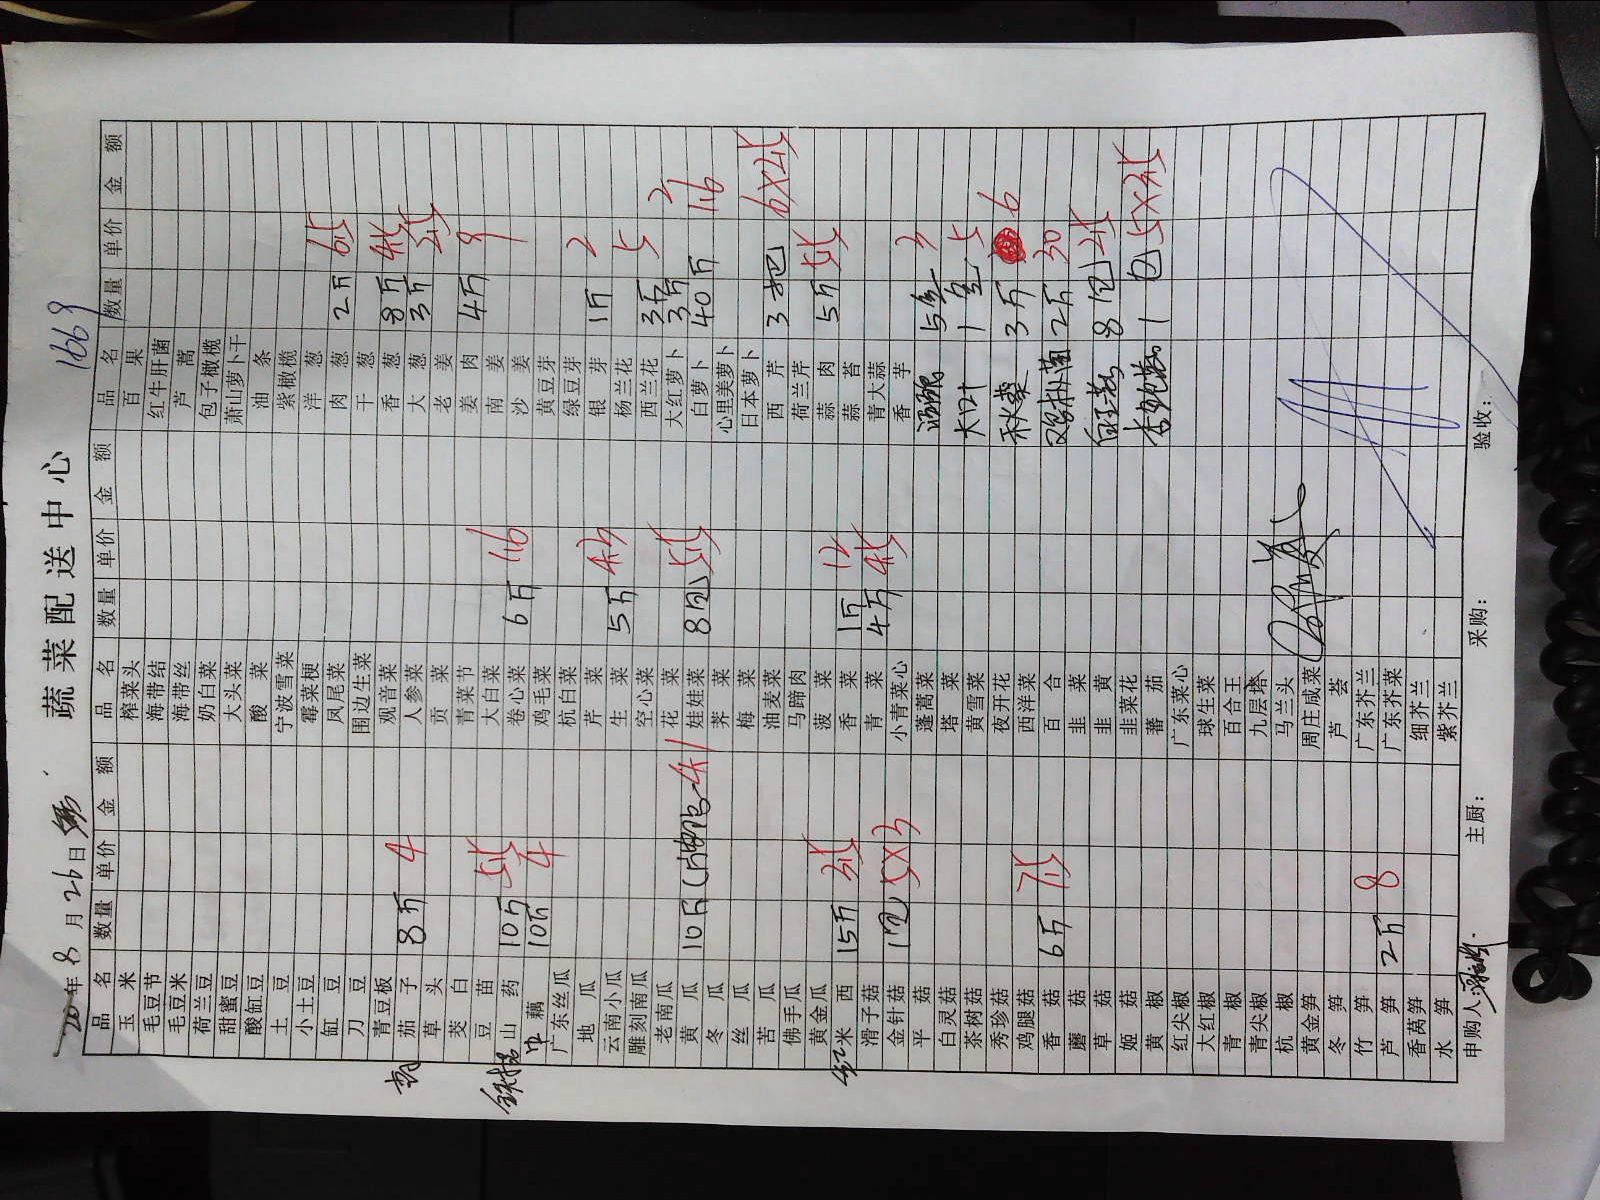 蔬菜配送中心
20 年 8 月 26 日 1669
品名 数量 单价 金额 品名 数量 单价 金额 品名 数量 单价 金额
玉米 榨菜头 百果
毛豆节 海带结 红牛肝菌
毛豆米 海带丝 芦蒿
荷兰豆 奶白菜 包子橄榄
甜蜜豆 大头菜 萧山萝卜干
酸缸豆 酸菜 油条
土豆 宁波雪菜 紫橄榄
小土豆 霉菜梗 洋葱
缸豆 凤尾菜 肉葱 2斤 65
刀豆 围边生菜 干葱
青豆板 观音菜 香葱 8斤 45
茄子 8斤 4 人参菜 大葱 3斤 25
草头 贡菜 老姜
茭白 青菜节 姜肉 4斤 9
豆苗 大白菜 南姜
山药 10斤 55 卷心菜 6斤 16 沙姜
中藕 10斤 4 鸡毛菜 黄豆芽
广东丝瓜 杭白菜 绿豆芽
地瓜 芹菜 银芽 1斤 2
云南小瓜 生菜 5斤 43 杨兰花
雕刻南瓜 空心菜 西兰花 3斤 5
老南瓜 花菜 大红萝卜 3斤 2
黄瓜 10斤 娃娃菜 8包 55 白萝卜 40斤 16
冬瓜 荠菜 心里美萝卜
丝瓜 梅菜 日本萝卜
苦瓜 油麦菜 西芹 3把 6×25
佛手瓜 马蹄肉 荷兰芹
黄金瓜 菠菜 蒜肉 5斤 55
红米西 15斤 35 香菜 1斤 12 蒜苔
滑子菇 青菜 4斤 45 青大蒜
金针菇 1包 5×3 小青菜心 香芋
平菇 蓬蒿菜 5盒 3
白灵菇 塔菜
茶树菇 黄雪菜 大叶 1盒 5
秀珍菇 夜开花 秋葵 3斤 6
鸡腿菇 西洋菜
香菇 6斤 75 百合 鸡枞菌 2斤 30
蘑菇 韭菜
草菇 韭黄 白玉菇 8包 25
姬菇 韭菜花
黄椒 蕃茄 杏鲍菇 1包 5×25
红尖椒 广东菜心
大红椒 球生菜
青椒 百合王
青尖椒 九层塔
杭椒 马兰头
黄金笋 周庄咸菜
冬笋 芦荟
竹笋 广东芥兰
芦笋 2斤 8 广东芥菜
香莴笋 细芥兰
水笋 紫芥兰
申购人: 主厨: 采购: 验收: